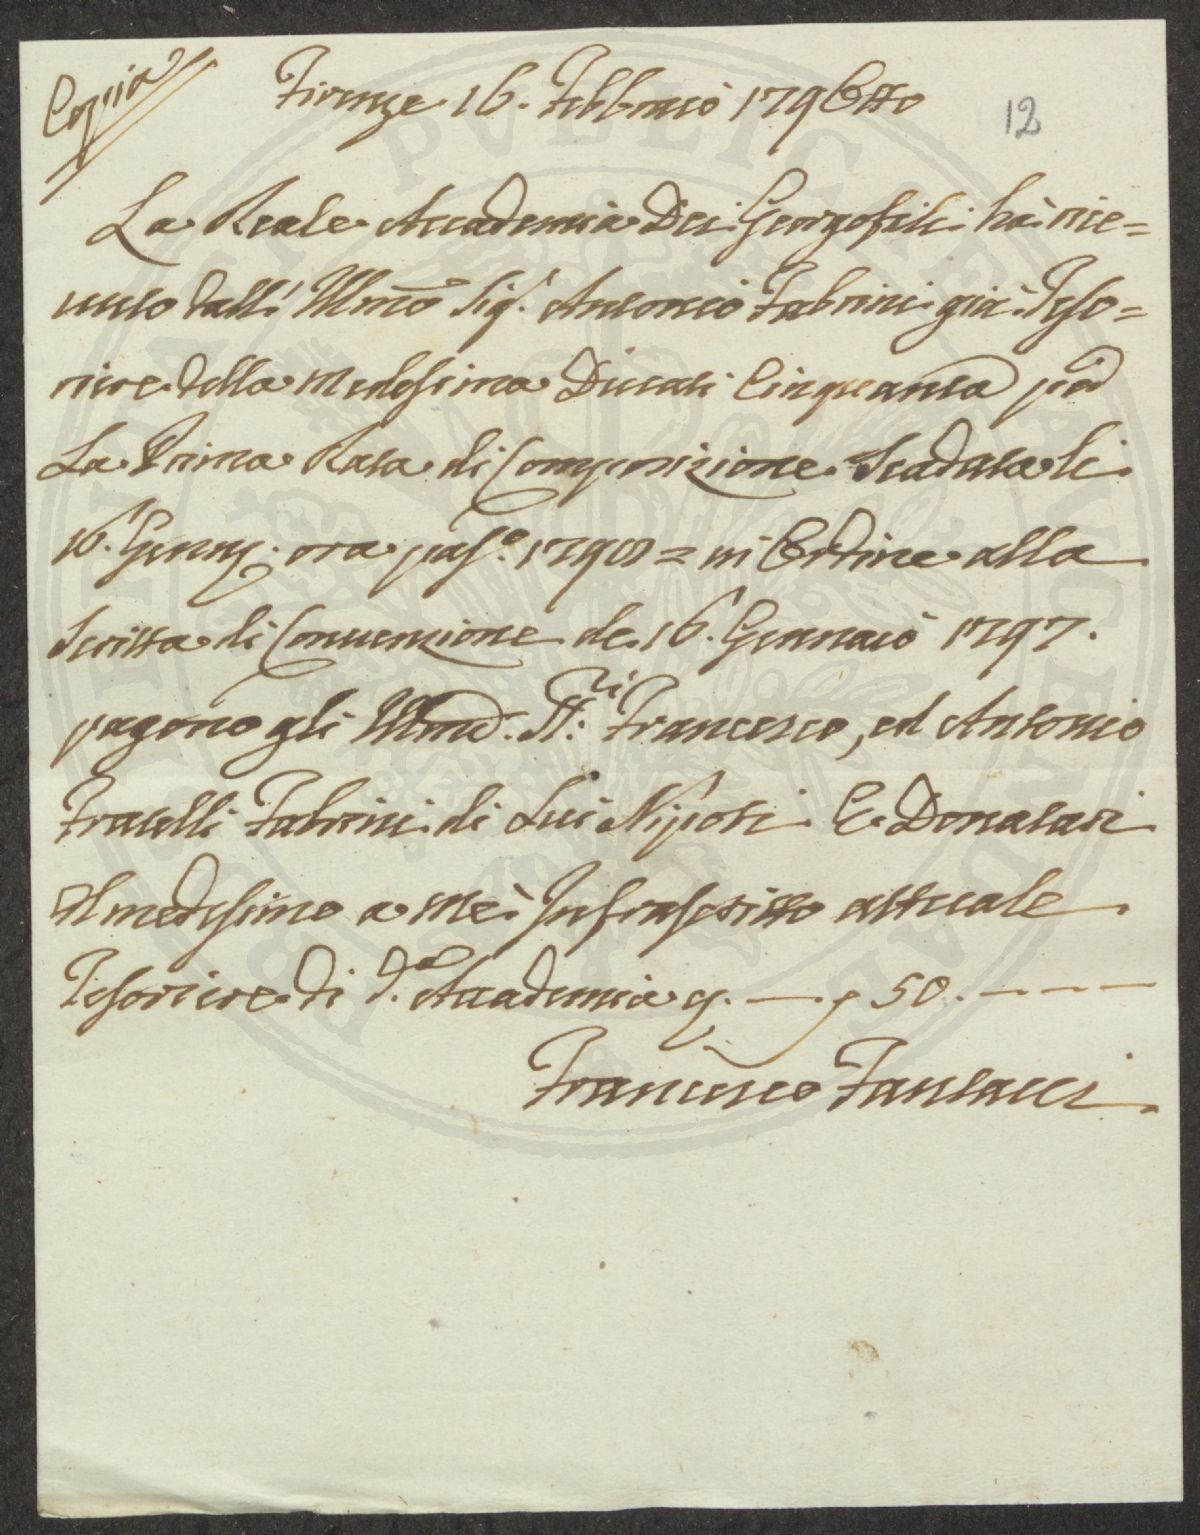 Coppia
Firenze 16. Febbraio 179Otto
12
La Reale Accademia Dei Georgofili hà rice=
vuto dall' Illmo Sigr. Antonio Fabrini già Teso=
riere della medesima Ducati Cinquanta per
La Prima Rata di Composizione Scaduta li
16. Genn: ora pass.o 1798 = in Ordine alla
Scritta di Convenzione de 16. Gennaio 1797.
pagono gli Illmi. SS.ri Francesco, ed Antonio
Fratelli Fabrini di Lui Nipoti E Donatari
Al medesimo a Mè Infrascritto attuale
Tesoriere di d.a Accademia 50. ----
Francesco Fantacci